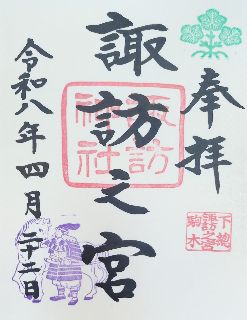 奉拝
諏訪之宮
諏訪神社
下總
諏訪宮
駒木
令和八年四月二十二日